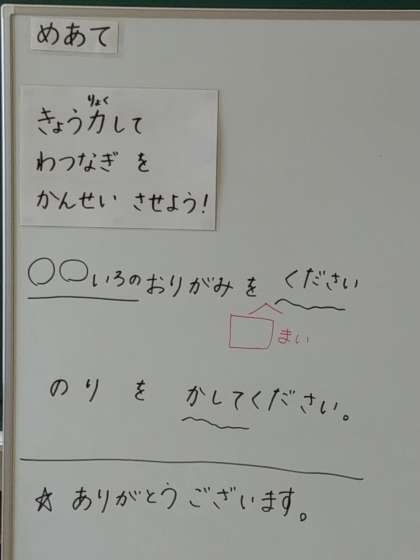 めあて
きょう力して
りょく
わつなぎを
かんせい させよう!
〇〇いろのおりがみを ください
□まい
のりを かしてください。
☆ ありがとうございます。